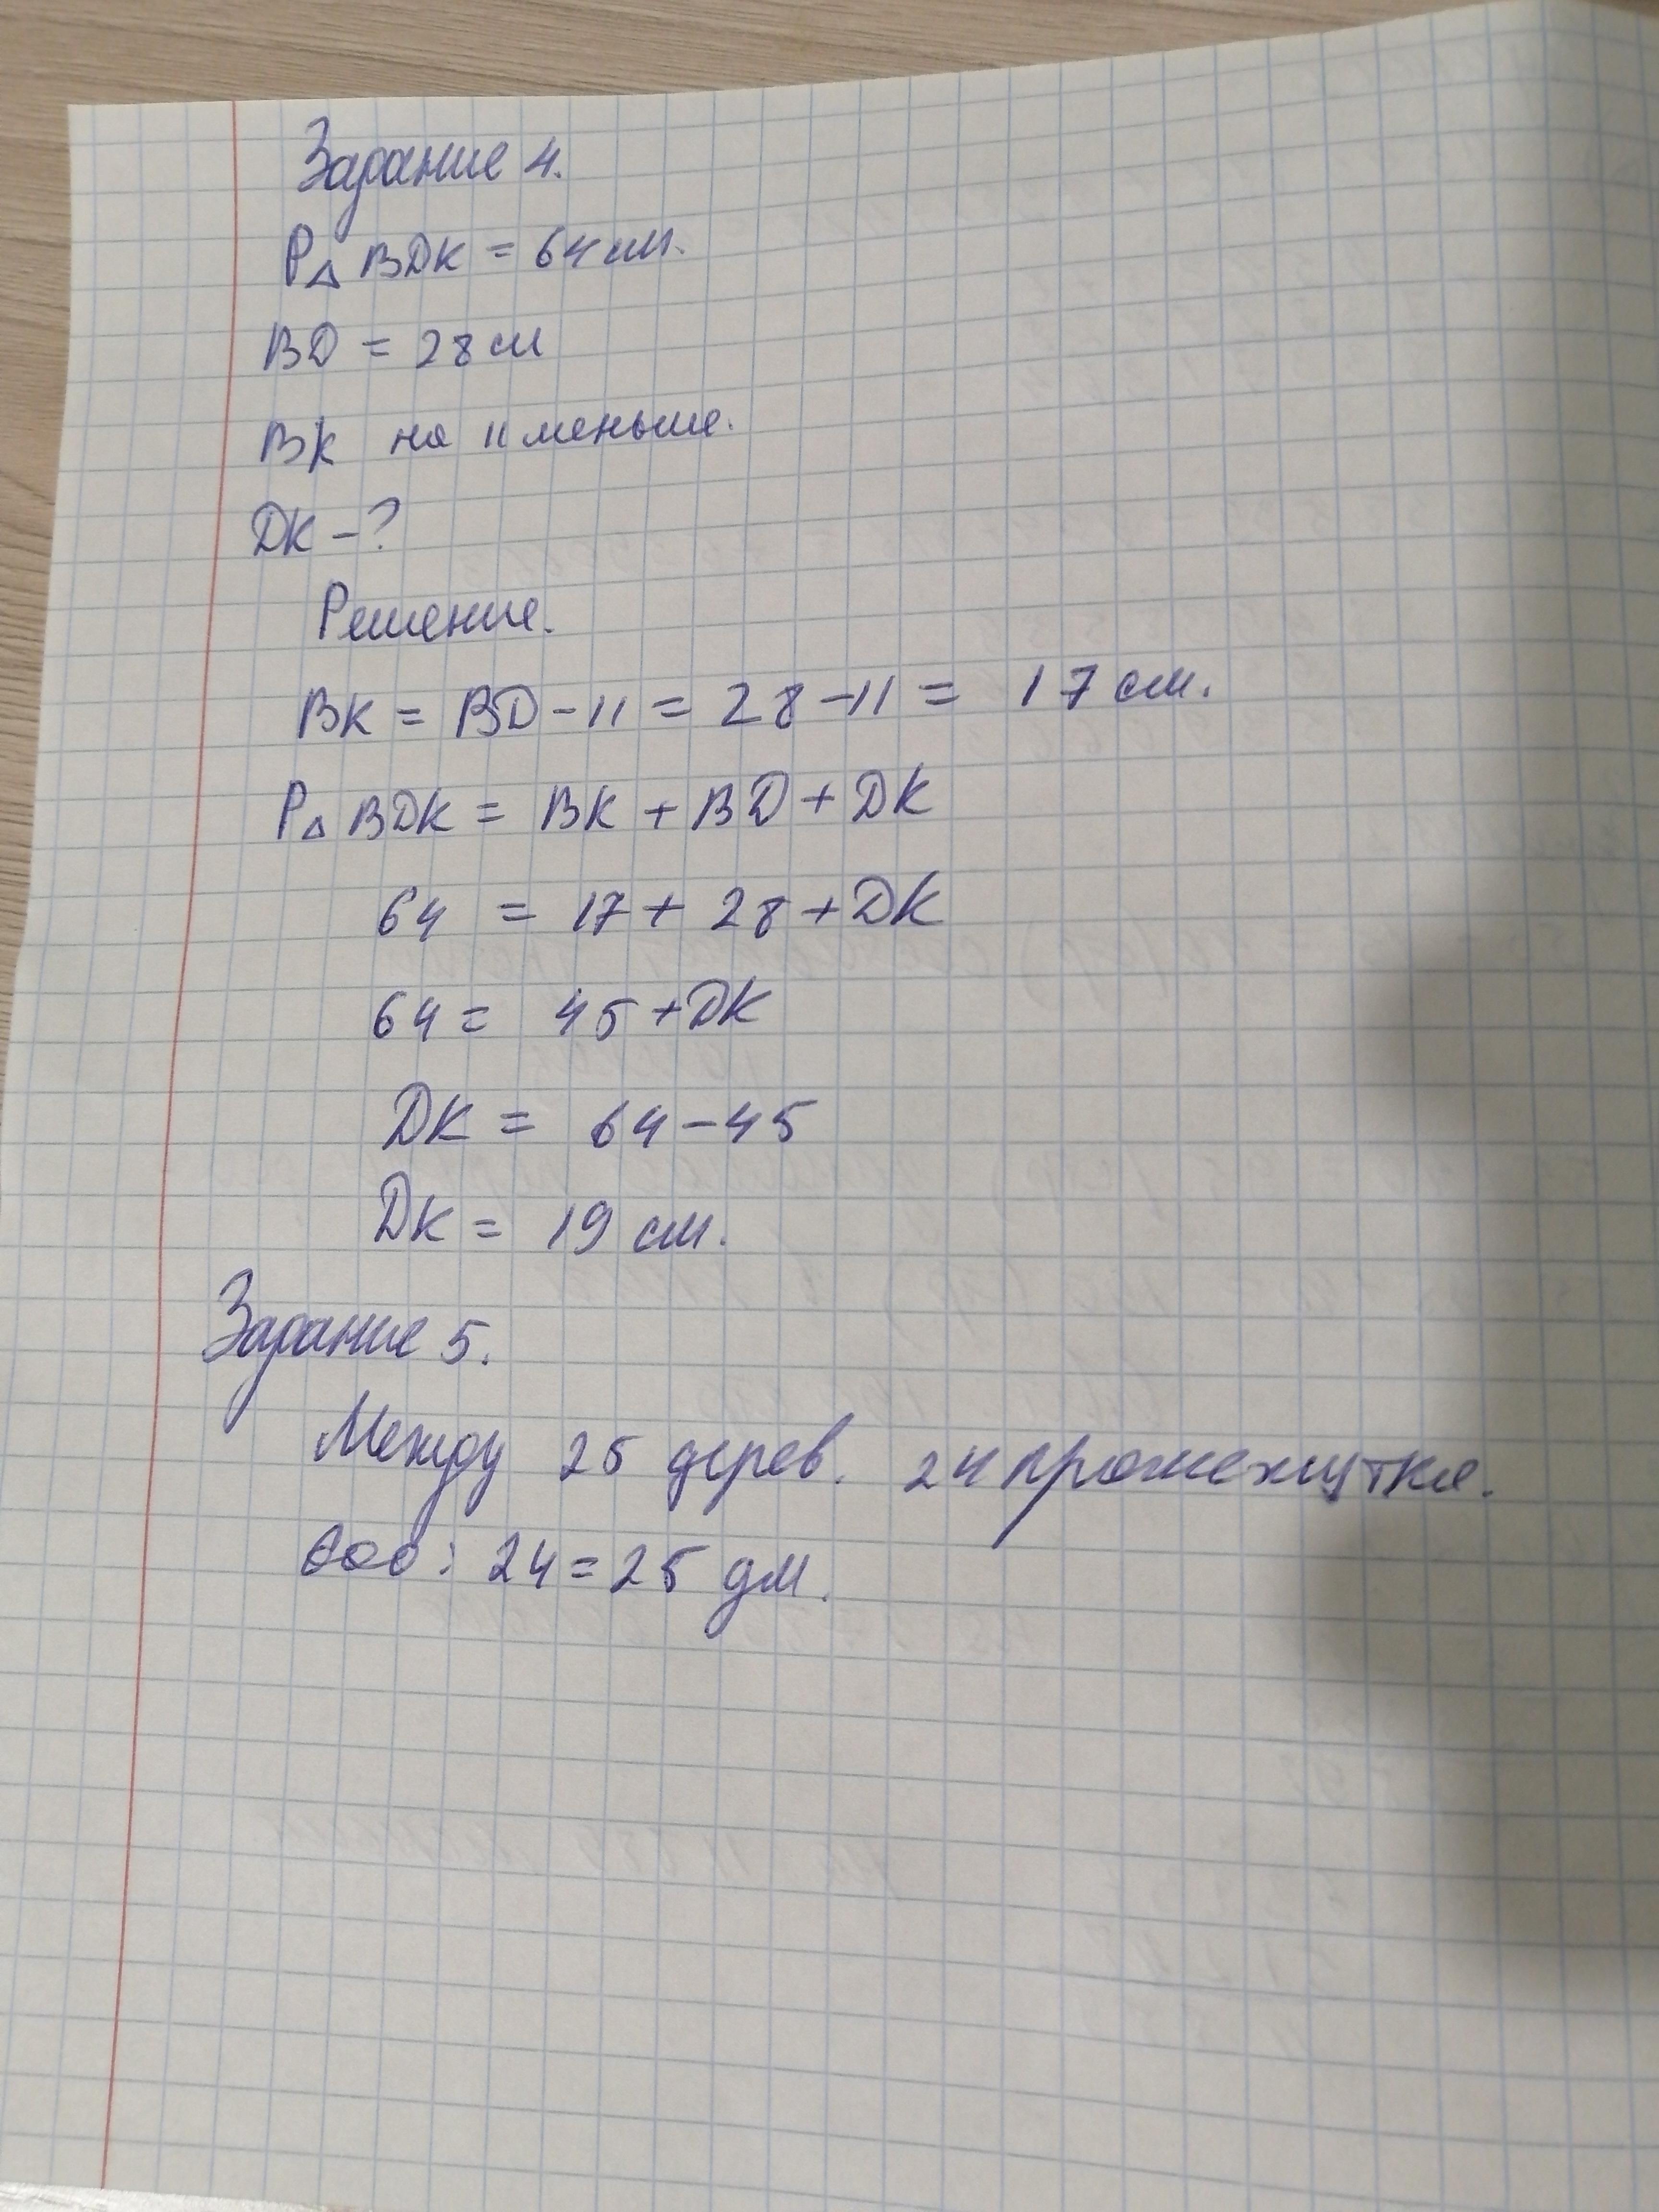 Задание 4.
P△ BDK = 64 см.
BD = 28 см
BK на 11 меньше.
DK - ?
Решение.
BK = BD - 11 = 28 - 11 = 17 см.
P△ BDK = BK + BD + DK
64 = 17 + 28 + DK
64 = 45 + DK
DK = 64 - 45
DK = 19 см.
Задание 5.
Между 25 дерев. 24 промежутка.
600 : 24 = 25 дм.